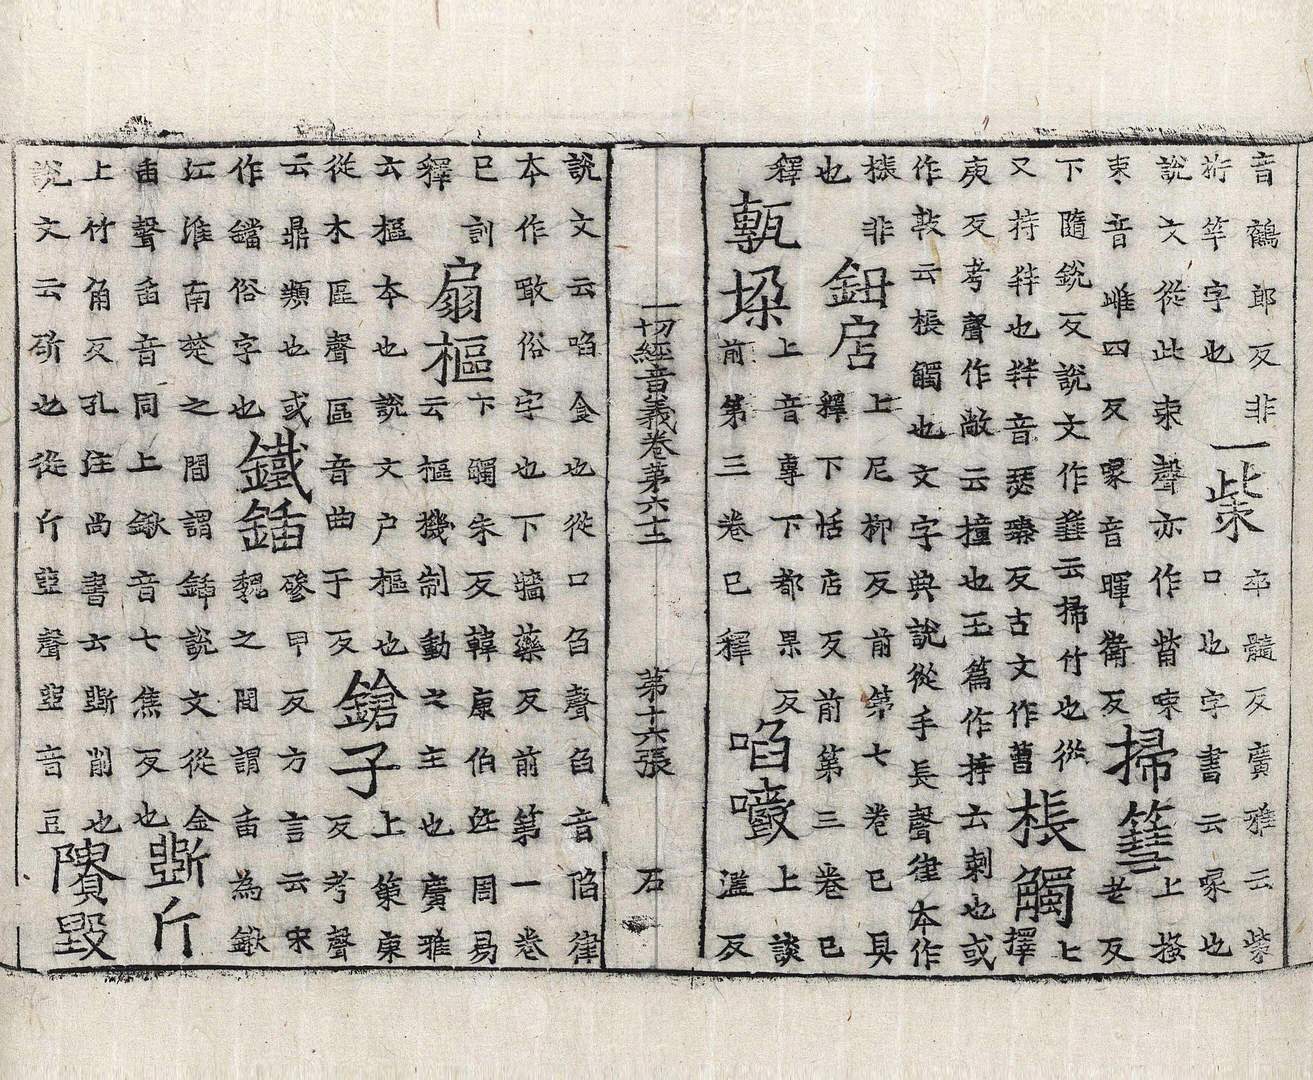 音鶴郎反非
桁竿字也
一柴
卒髓反廣雅云紫
口也字書云喙也
說文從此朿聲亦作觜㖩
朿音雌四反喙音暉衛反
掃篲
上掻
老反
下隨銳反說文作蔧云掃竹也從
又持牪也牪音瑟臻反古文作
棖觸
上
擇
庚反考聲作敞云撞也玉篇作云刺也或
作敦云棖觸也文字典說從手長聲律本作
棖非
也
鈕居
上尼柳反前第七卷已具
釋下恬店反前第三卷已
釋
甎垛
上音專下都果反
前第三卷已釋
啗嚼
上談
濫反
一切經音義卷第六十二 第十六張 石
說文云啗食也從口臽聲臽音陷律
本作噉俗字也下牆藥反前第一卷
已訓
釋
扇樞
下觸朱反韓康伯注周易
云樞機制動之主也廣雅
云樞本也說文户樞也
從木區聲區音曲于反
鎗子
上策庚
反考聲
云鼎類也或
作鐺俗字也
鐵鍤
磣甲反方言云宋
魏之間謂臿為鍬
江淮南楚之間謂鍤說文從金
臿聲臿音同上鍬音七焦反也
斲斤
上竹角反孔注尚書云斲削也
說文云斫也從斤㔽聲㔽音豆
隤毀